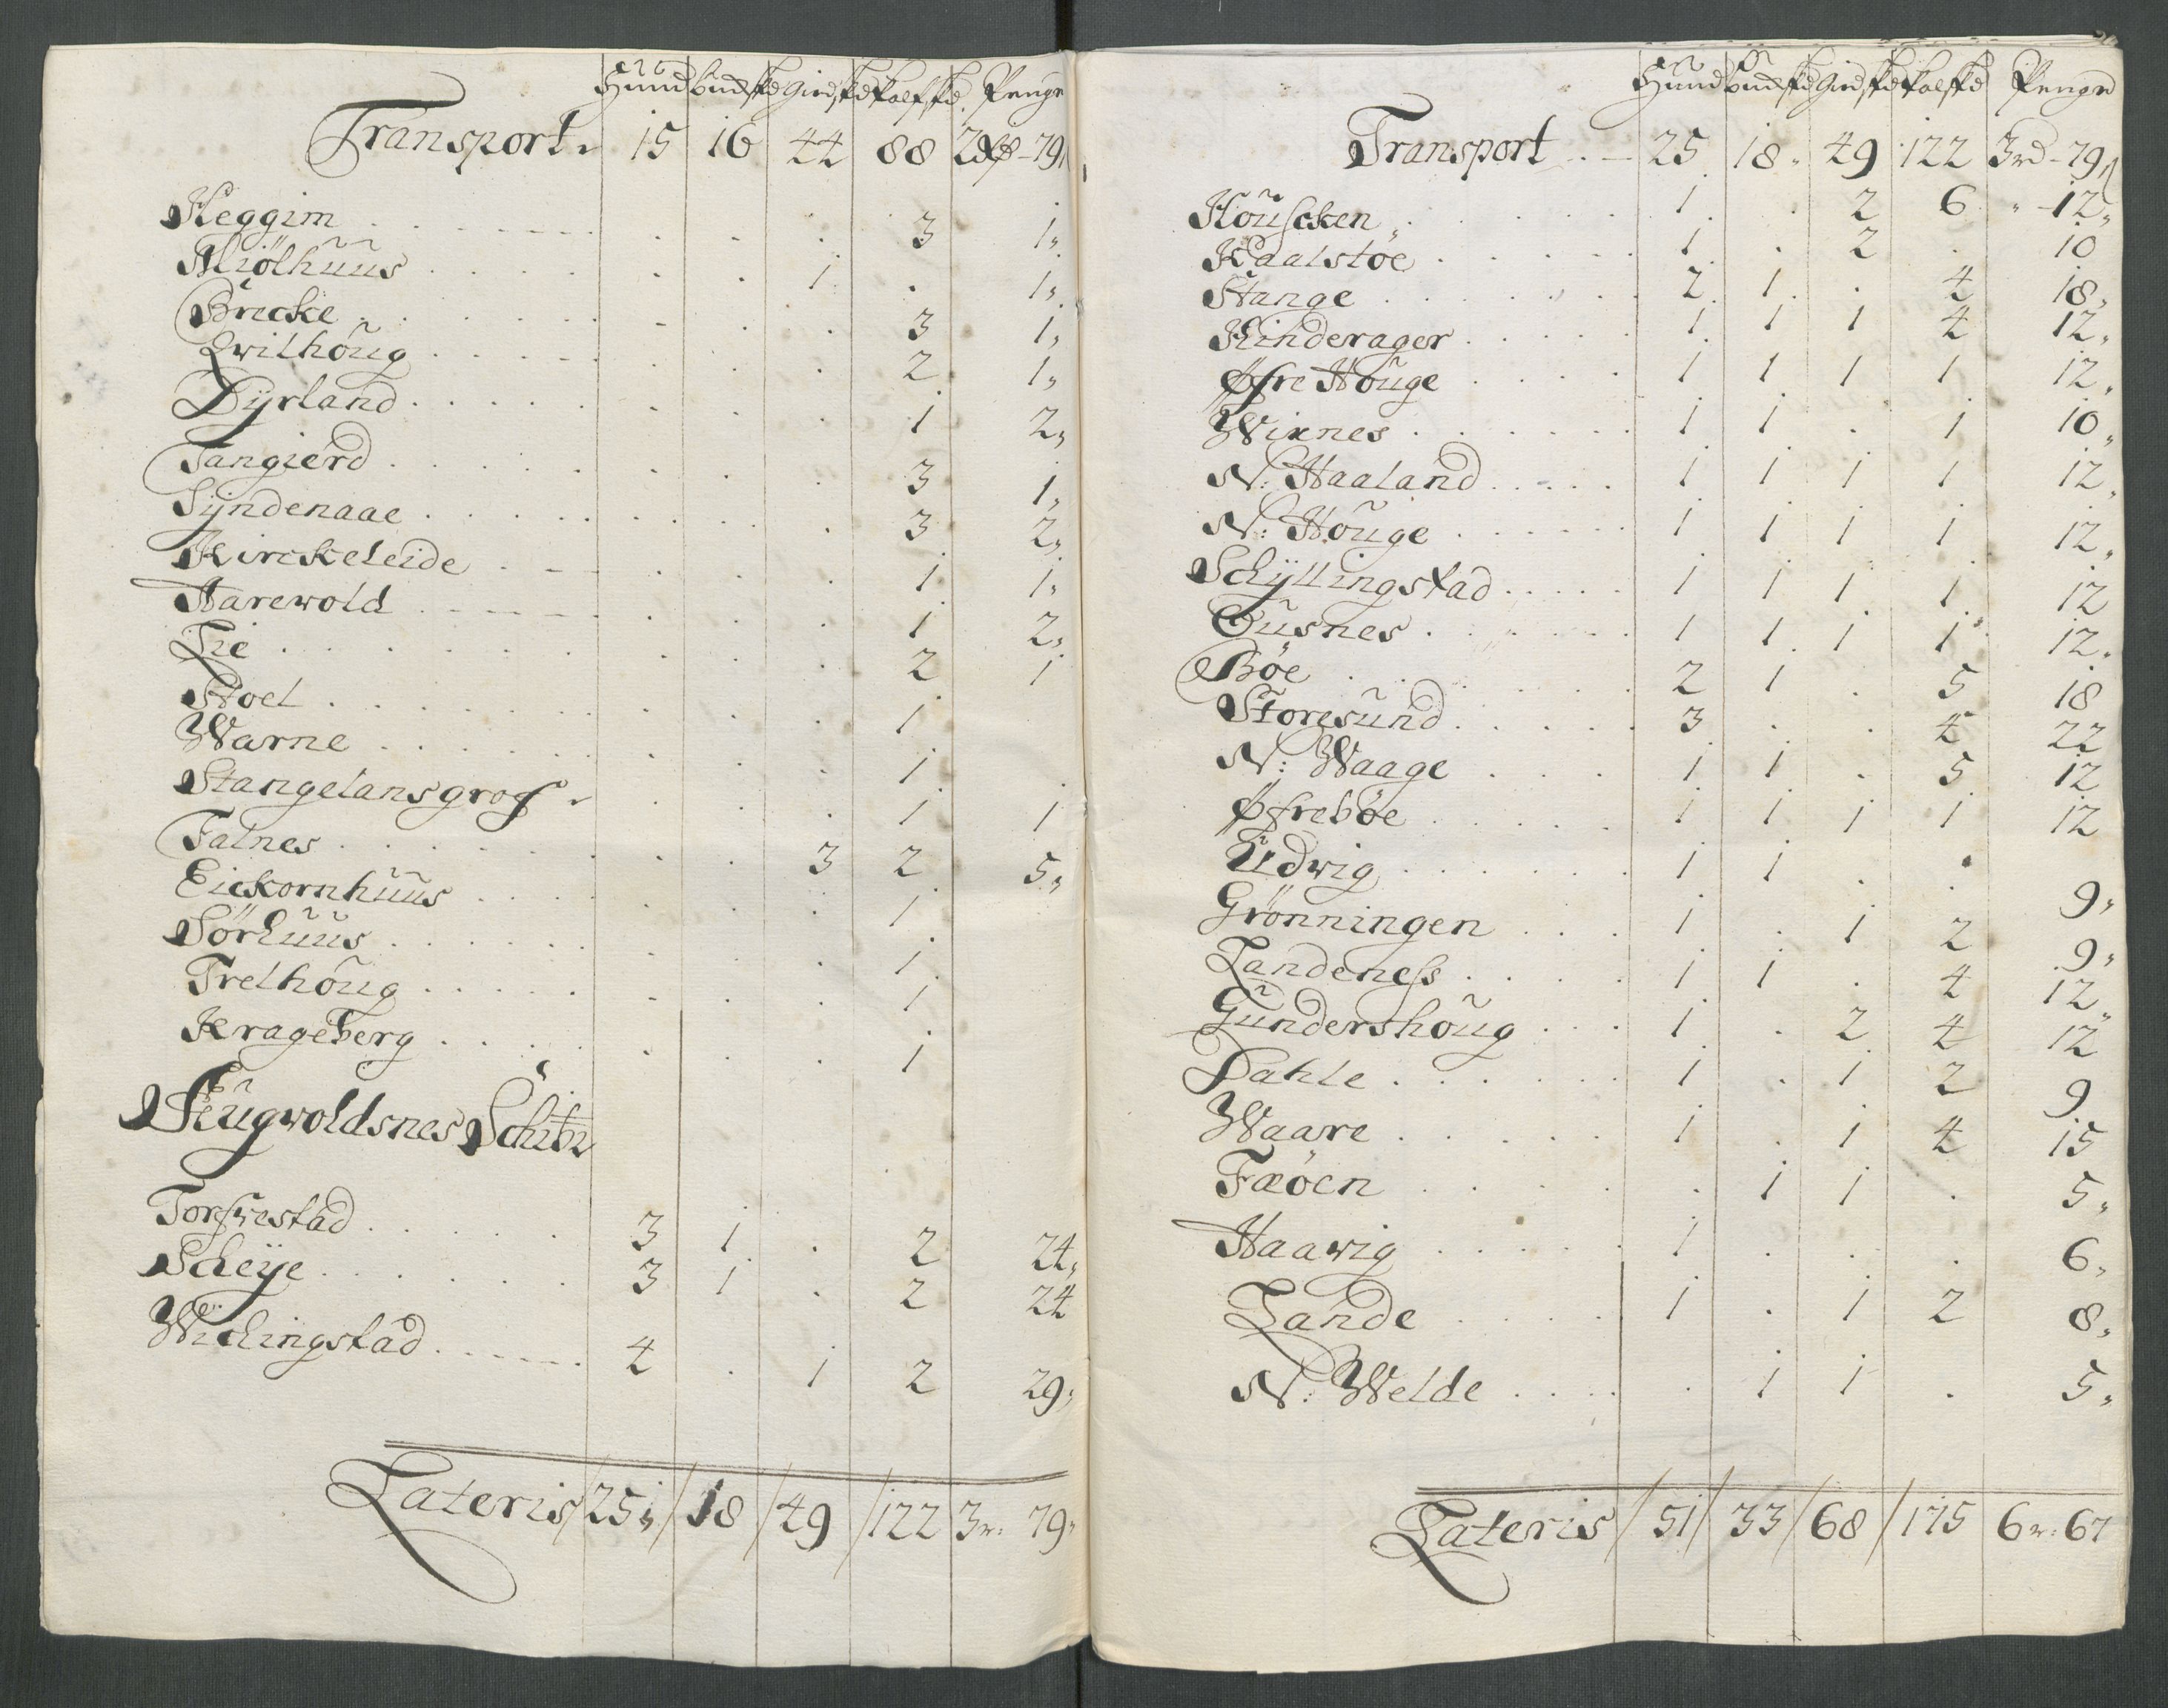 Huud Budskd Giedskd Kalfskd Penge
Transport 15 16 44 88 79
Heggim 3 1
Miölhuus 1 1
Brecke 3 1
Qvilhoug 2 1
Dÿrland 1 2
Tangierd 3 1
Sÿndenaae 3 2
Kirckeleide 1 1
Aarewold 1 2
Lie 2 1
Stoel 1
Warne 1
Stangelansgrof 1 1
Falnes 3 2 5
Eickornhuus 1
Sörhuus 1
Trelhoug 1
Krageberg 1
Augwoldsnes
Torfvestad 3 1 2 24
Scheÿe 3 1 2 24
Wichingstad 4 1 2 29
Lateris 25 18 49 122 3r: 79
Huud Budskd Giedskd Kalfskd Penge
Transport 25 18 49 122 3rd 79
Houscken 1 2 6 12
Kaalstöe 1 2 10
Stange 2 1 4 18
Hinderager 1 1 1 4 12
Øfre Houge 1 1 1 1 12
Wixnes 1 1 1 10
N: Haaland 1 1 1 1 12
N: Houge 1 1 1 1 12
Schÿllingstad 1 1 1 1 12
Gusnes 1 1 1 1 12
Böe 2 1 5 18
Storesund 3 4 22
N: Waage 1 1 5 12
Øfreböe 1 1 1 1 12
Udwig 1 1 9
Grönningen 1 1 2 9
Landeness 1 1 4 12
Gundershoug 1 2 4 12
Dahle 1 1 2 9
Waare 1 1 4 15
Fæöen 1 1 5
Haawig 1 6
Lande 1 1 2 8
N: Welde 1 1 5
Lateris 51 33 68 175 6r: 67